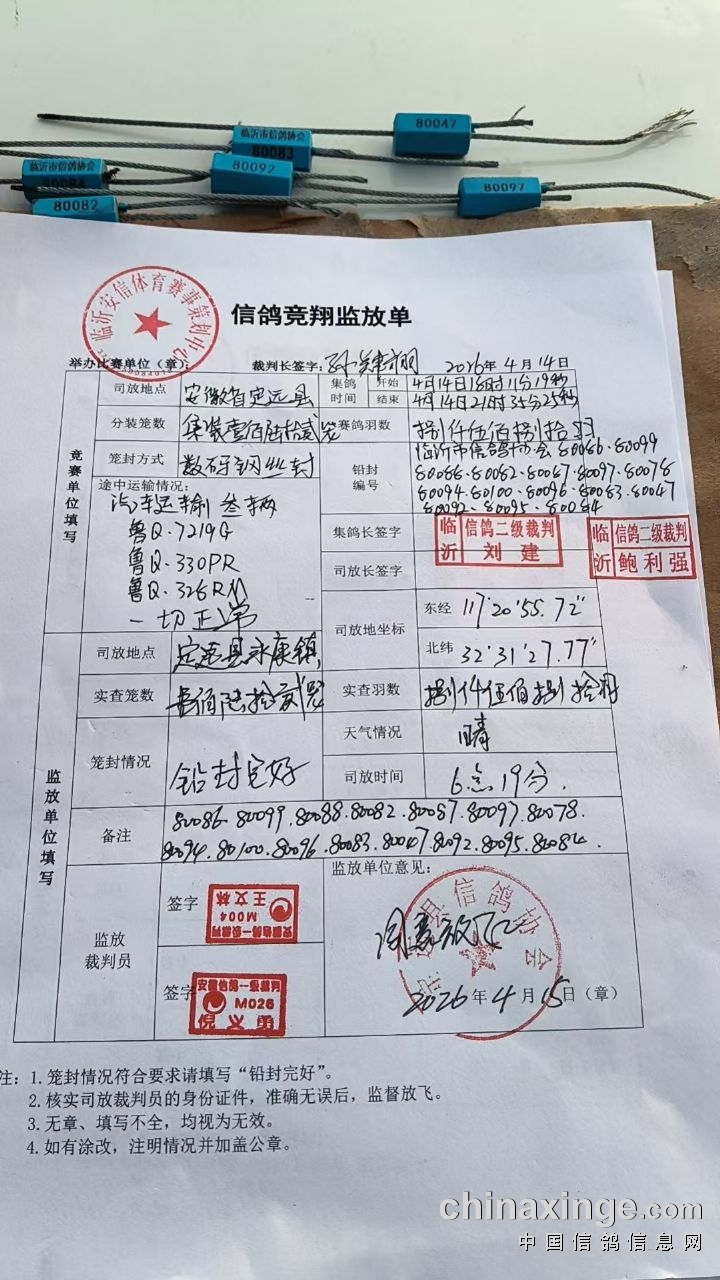 80047
临沂市信鸽协会
80083
80092
临沂市信鸽协会
80084
80097
80082
临沂安信体育赛事策划中心
信鸽竞翔监放单
举办比赛单位（章）：
裁判长签字：
2026年4月14日
竞赛单位填写
司放地点
安徽省定远县
集鸽时间
开始
4月14日18时11分19秒
结束
4月14日21时35分25秒
分装笼数
集装壹佰陆拾贰笼
参赛鸽羽数
捌仟伍佰捌拾羽
笼封方式
数码钢丝封
铅封编号
临沂市信鸽协会 80086.80099
80088.80082.80087.80097.80078
80094.80100.80096.80083.80047
80092.80095.80084
途中运输情况：
汽车运输 叁辆
鲁Q.7219G
鲁Q.330PR
鲁Q.326RM
一切正常
集鸽长签字
临沂
信鸽二级裁判
刘建
临沂
信鸽二级裁判
鲍利强
司放长签字
司放地坐标
东经
117°20′55.72″
北纬
32°31′27.77″
监放单位填写
司放地点
定远县永康镇
实查笼数
壹佰陆拾贰笼
实查羽数
捌仟伍佰捌拾羽
笼封情况
铅封完好
天气情况
晴
司放时间
6点19分.
备注
80086.80099.80088.80082.80087.80097.80078.
80094.80100.80096.80083.80047.80092.80095.80084.
监放裁判员
签字
安徽信鸽一级裁判
M004
王文林
签字
安徽信鸽一级裁判
M026
倪义勇
监放单位意见：
同意放飞
县信鸽协会
2026年4月15日（章）
注：1.笼封情况符合要求请填写“铅封完好”。
2.核实司放裁判员的身份证件，准确无误后，监督放飞。
3.无章、填写不全，均视为无效。
4.如有涂改，注明情况并加盖公章。
chinaxinge.com
中国信鸽信息网